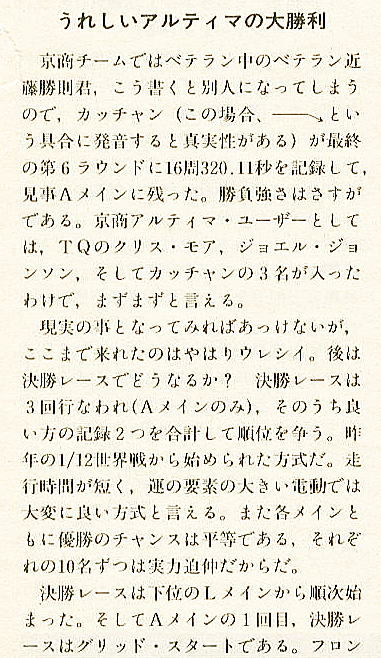 うれしいアルティマの大勝利
京商チームではベテラン中のベテラン近
藤勝則君，こう書くと別人になってしまう
ので，カッチャン（この場合、――→とい
う具合に発音すると真実性がある）が最終
の第6ラウンドに16周320.11秒を記録して，
見事Aメインに残った。勝負強さはさすが
である。京商アルティマ・ユーザーとして
は，TQのクリス・モア，ジョエル・ジョ
ンソン，そしてカッチャンの3名が入った
わけで，まずまずと言える。
現実の事となってみればあっけないが，
ここまで来れたのはやはりウレシイ。後は
決勝レースでどうなるか？　決勝レースは
3回行なわれ(Aメインのみ)，そのうち良
い方の記録2つを合計して順位を争う。昨
年の1/12世界戦から始められた方式だ。走
行時間が短く，運の要素の大きい電動では
大変に良い方式と言える。また各メインと
もに優勝のチャンスは平等である，それぞ
れの10名ずつは実力迫伸だからだ。
決勝レースは下位のLメインから順次始
まった。そしてAメインの1回目，決勝レ
ースはグリッド・スタートである。フロン